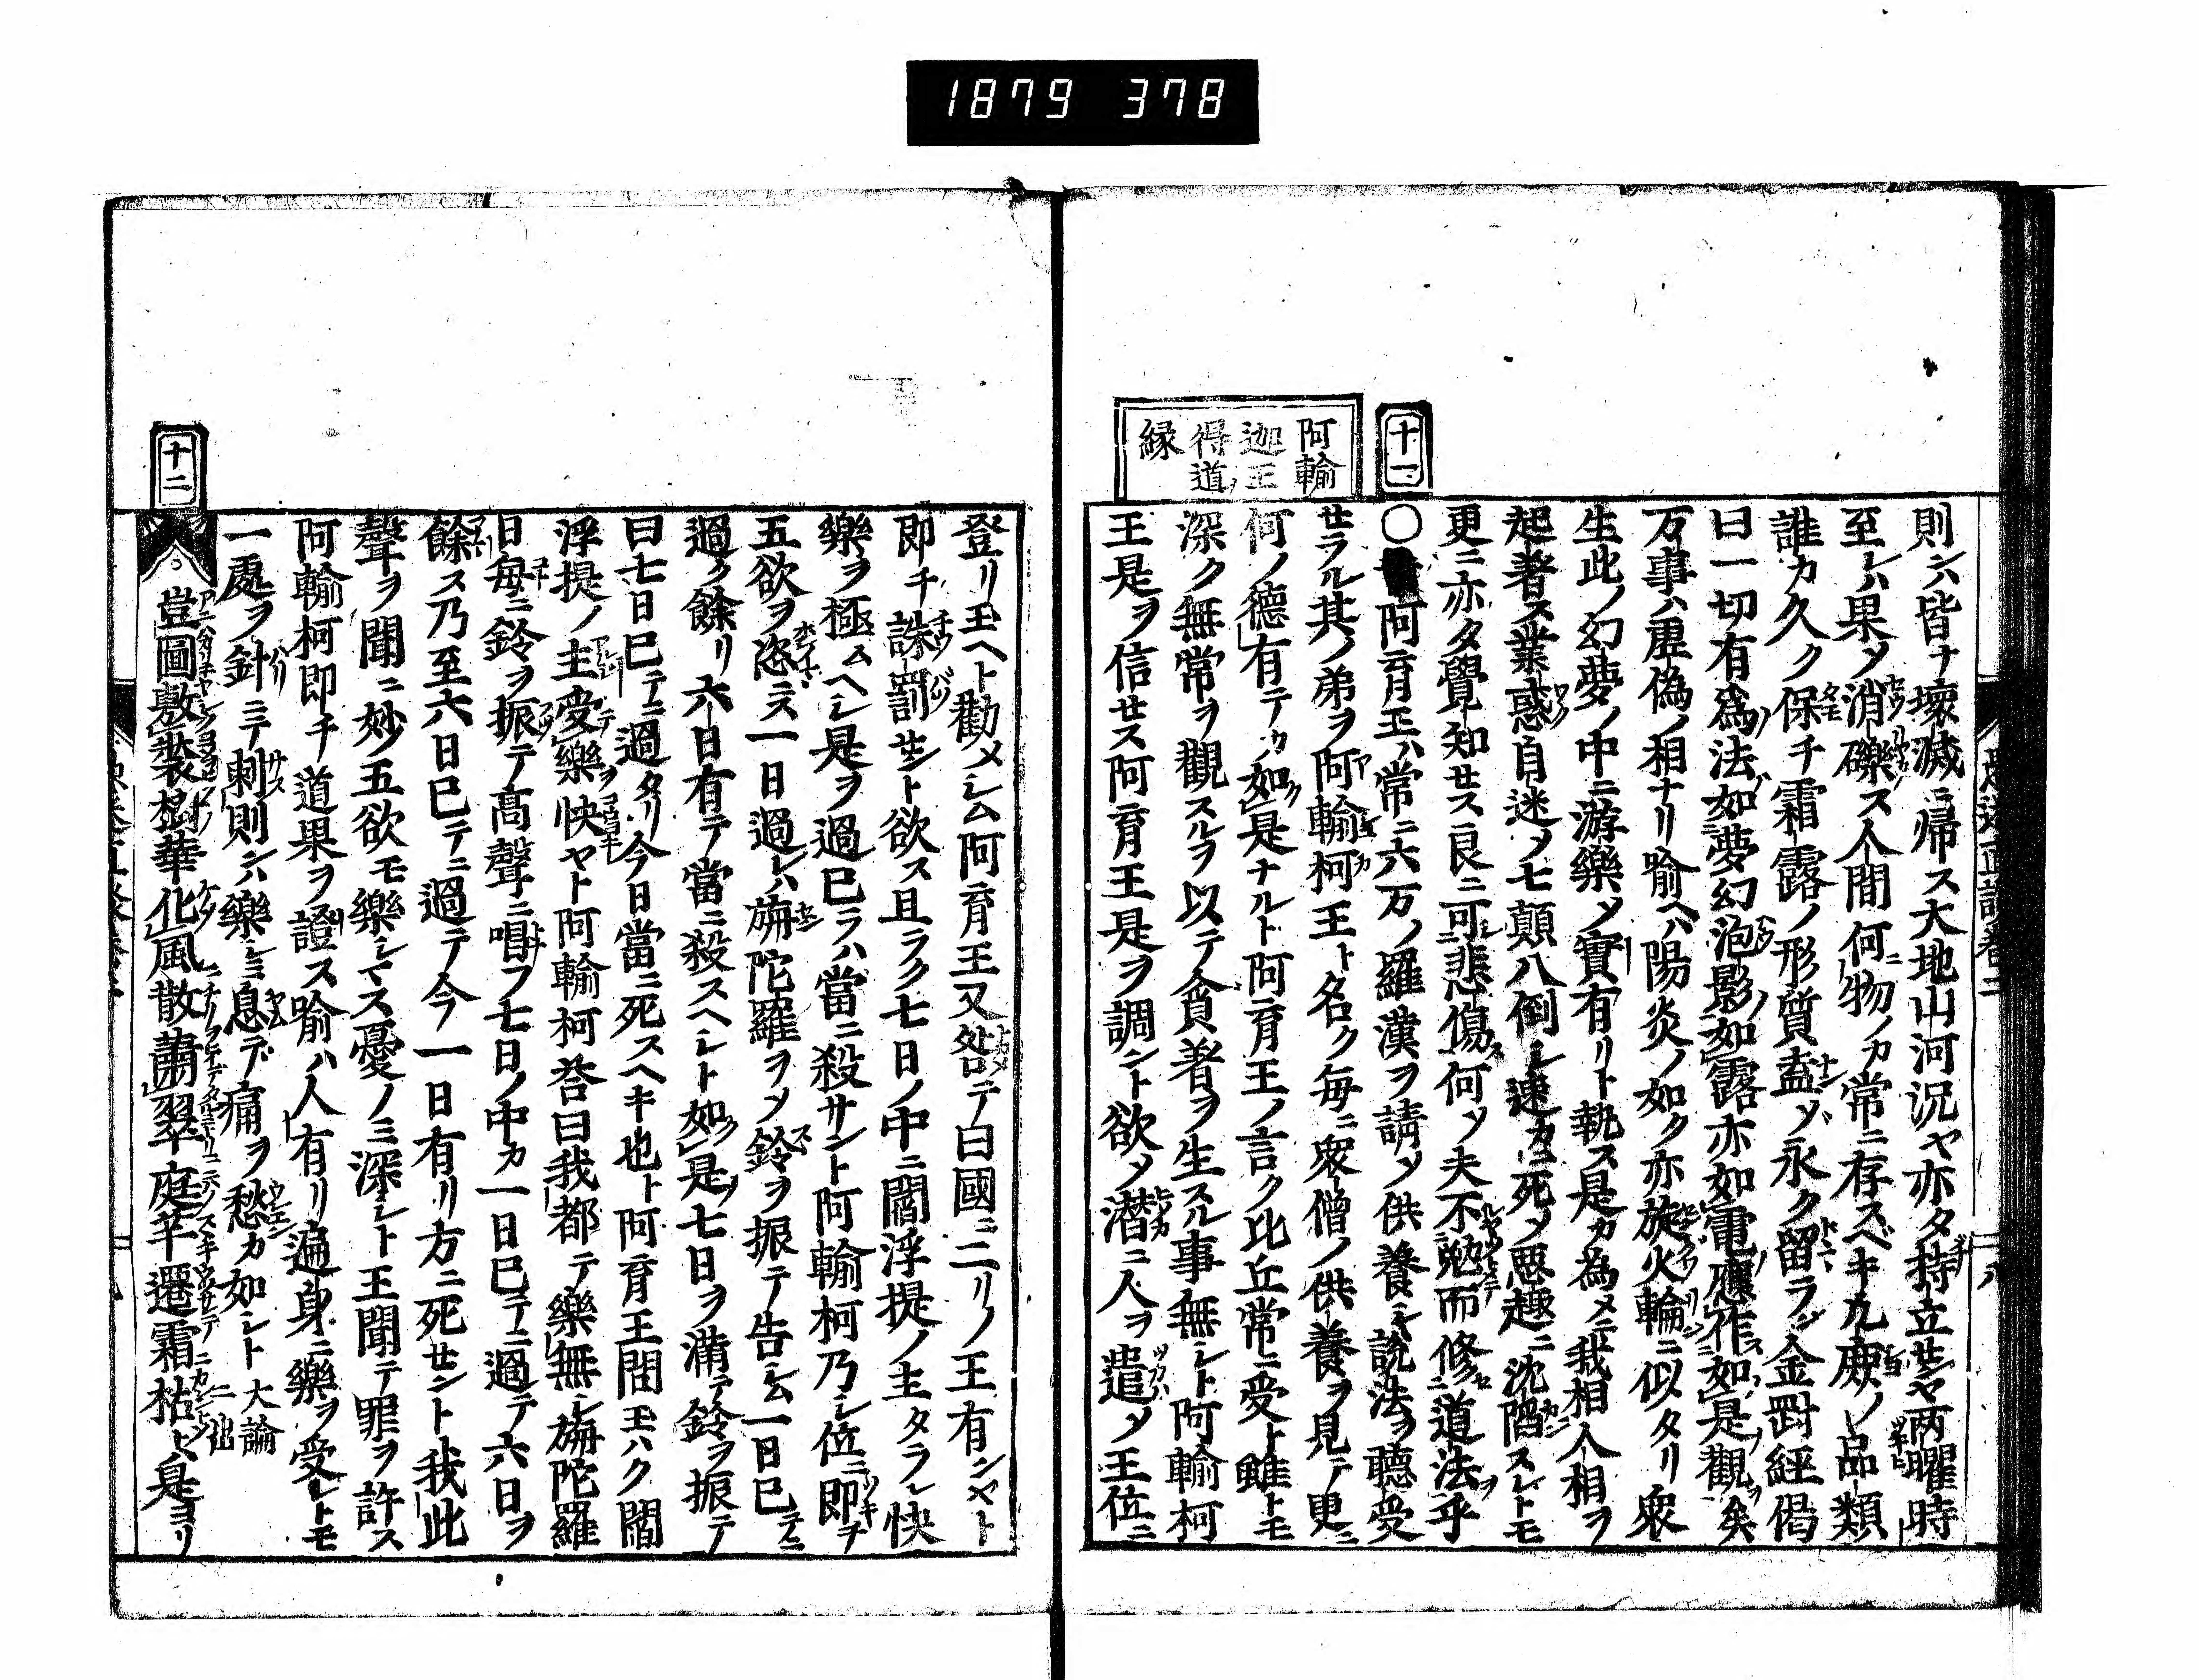 1879 378
十一
阿輸
迦王
得道
縁
則ンハ皆ナ壞滅ニ帰ス大地山河況ヤ亦タ持立センヤ两曜時
至レハ果ノ消礫ス人間何物ノカ常ニ存スベキ九ノ品類
誰カ久ク保チ霜露ノ形質盍ゾ永ク留ラン金罸經偈
曰一切有爲法如夢幻泡影如露亦如電應作如是觀矣
万事ハ虛偽ノ相ナリ喩ヘハ陽炎ノ如ク亦旋火輪ニ似タリ衆
生此ノ幻夢ノ中ニ游樂メ實有リト執ス是カ為メニ我相人相ヲ
起者ス業惑自迷ノ七顛八倒シ速カニ死ノ悪趣ニ沈陷スレトモ
更ニ亦タ覺知セス良ニ可悲傷何ソ夫不勉而修道法乎
〇阿育王ハ常ニ六万ノ羅漢ヲ請メ供養シ說法ヲ聽受
セラル其ノ弟ヲ阿輸柯王ト名ク每ニ衆僧ノ供養ヲ見テ更ニ
何ノ德有テカ如是ナルト阿育王ノ言ク比丘常ニ受ト雖トモ
深ク無常ヲ觀スルヲ以テ貪著ヲ生スル事無シト阿輸柯
王是ヲ信セス阿育王是ヲ調ント欲メ潜ニ人ヲ遣メ王位ニ
登リ玉ヘト勸メシム阿育王又咎テ曰國ニ二リノ王有ンヤト
即チ誅罰セント欲ス且ラク七日ノ中ニ閻浮提ノ主タラシ快
樂ヲ極ムヘシ是ヲ過已ラハ當ニ殺サント阿輸柯乃シ位ニ即チ
五欲ヲ恣ニス一日過レハ旃陀羅ヲメ鈴ヲ振テ告シム一日已テニ
過ク餘リ六日有テ當ニ殺スヘシト如是七日ヲ滿テ鈴ヲ振テ
曰七日已テニ過タリ今日當ニ死スヘキ也ト阿育王問玉ハク閻
浮提ノ主受樂快ヤト阿輸柯答曰我都テ樂無シ旃陀羅
日每ニ鈴ヲ振テ髙聲ニ唱フ七日ノ中カ一日已テニ過テ六日ヲ
餘ス乃至六日已テニ過テ今一日有リ方ニ死セント我此
聲ヲ聞ニ妙五欲モ樂シマス憂ノミ深シト王聞テ罪ヲ許ス
阿輸柯即チ道果ヲ證ス喩ハ人有リ遍身ニ樂ヲ受レトモ
一處ヲ針ニテ刺則ンハ樂シミ息デ痛ヲ愁カ如シト大論ニ出
十二
豈圖敷裝樹華化風散蕭翠庭芊還霜枯トハ是ヨリ